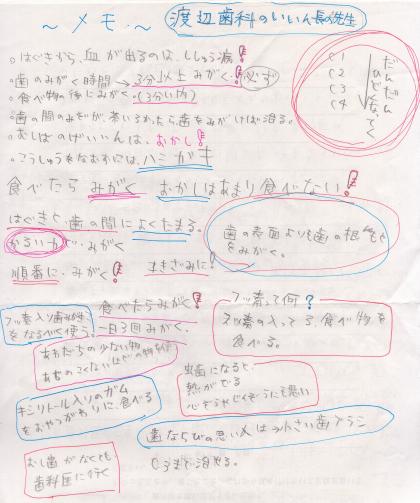 ～メモ～
渡辺歯科のいいん長の先生
○はぐきから、血が出るのは、ししゅう病!
○歯のみがく時間→3分以上みがく!必ず
○食べ物の後にみがく。(3分い内)
C1
C2
C3
C4
だんだん
ひどくなってく
むしばのげいいんは、おかし!
○こうしゅうをなおすには、ハミガキ
食べたらみがく おかしはあまり食べない!
はぐきと歯の間によくたまる。
かるい力で・みがく
順番に・みがく! 小きざみに!
歯の表面よりも歯の根
をみがく。
フッ素入り歯みがき
をなるべく使う。
食べたらみがく!
一日3回みがく。
フッ素って何?
フッ素の入ってる、食べ物を
食べる。
あわだちの少ない物
キシリトール入りのガム
をおやつがわりに、食べる
虫歯になると
熱がでる
心ぞうやじんぞうにも悪い
歯ならびの悪い人は→小さい歯ブラシ
むし歯がなくても
歯科医に行く
C3まで治せる。